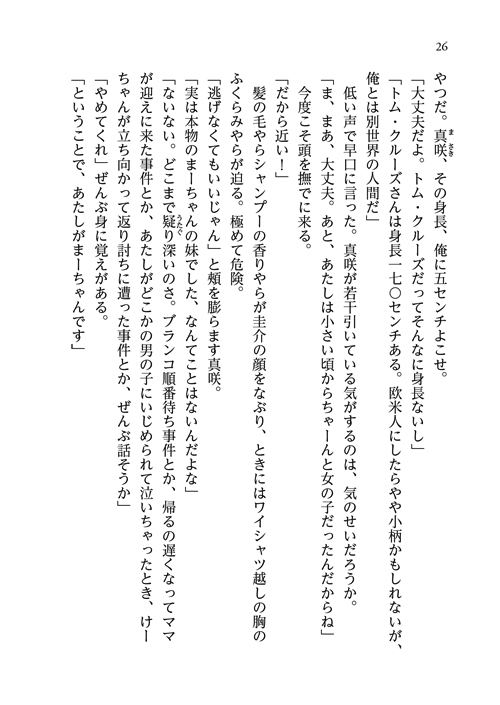 26
やつだ。真咲、その身長、俺に五センチよこせ。
「大丈夫だよ。トム・クルーズだってそんなに身長ないし」
「トム・クルーズさんは身長一七〇センチある。欧米人にしたらやや小柄かもしれないが、
俺とは別世界の人間だ」
低い声で早口に言った。真咲が若干引いている気がするのは、気のせいだろうか。
「ま、まあ、大丈夫。あと、あたしは小さい頃からちゃーんと女の子だったんだからね」
今度こそ頭を撫でに来る。
「だから近い！」
髪の毛やらシャンプーの香りやらが圭介の顔をなぶり、ときにはワイシャツ越しの胸の
ふくらみやらが迫る。極めて危険。
「逃げなくてもいいじゃん」と頬を膨らます真咲。
「実は本物のまーちゃんの妹でした、なんてことはないんだよな」
「ないない。どこまで疑り深いのさ。ブランコ順番待ち事件とか、帰るの遅くなってママ
が迎えに来た事件とか、あたしがどこかの男の子にいじめられて泣いちゃったとき、けー
ちゃんが立ち向かって返り討ちに遭った事件とか、ぜんぶ話そうか」
「やめてくれ」ぜんぶ身に覚えがある。
「ということで、あたしがまーちゃんです」